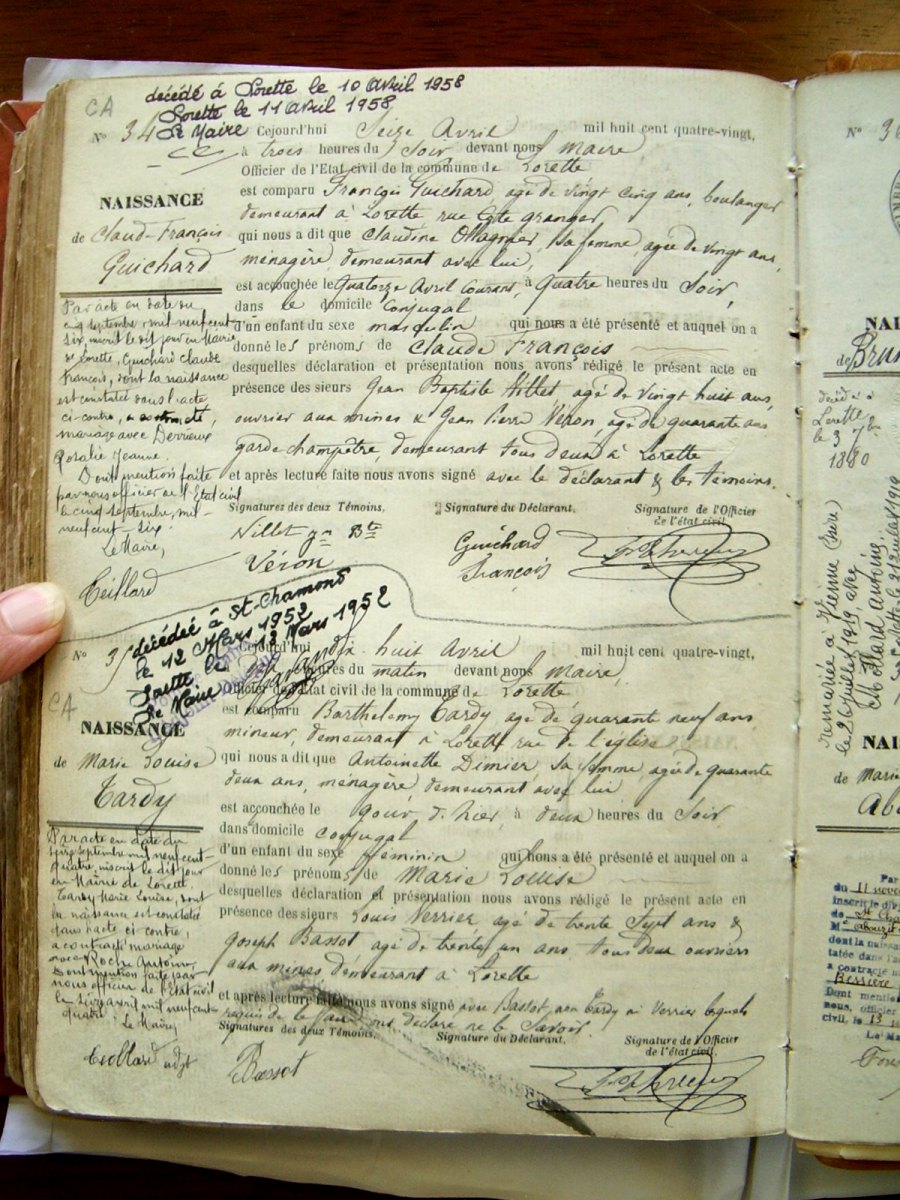 CA
décédé à Lorette le 10 Avril 1958
Lorette le 11 Avril 1958
Le Maire
N° 34
Cejourd'hui Seize Avril mil huit cent quatre-vingt,
à trois heures du Soir devant nous Maire
Officier de l'Etat civil de la commune de Lorette
est comparu François Guichard agé de vingt cinq ans, boulanger
demeurant à Lorette rue Côte granger,
qui nous a dit que Claudine Ollagnier, sa femme, agée de vingt ans,
ménagère, demeurant avec lui,
est accouchée le Quatorze Avril courant, à Quatre heures du Soir,
dans le domicile conjugal
d'un enfant du sexe masculin qui nous a été présenté et auquel on a
donné les prénoms de Claude François
desquelles déclaration et présentation nous avons rédigé le présent acte en
présence des sieurs Jean Baptiste agé de vingt huit ans,
ouvrier aux mines & Jean Pierre Véron, agé de quarante ans
garde champêtre, demeurant tous deux à Lorette
et après lecture faite nous avons signé avec le déclarant & les témoins.
Signatures des deux Témoins,
Signature du Déclarant.
Signature de l'Officier
de l'état civil
Véron
Guichard
François
NAISSANCE
de Claud-François
Guichard
Par acte en date du
cinq septembre mil neuf cent
six, inscrit le dit jour en Mairie
de Lorette, Guichard Claude
François, dont la naissance
est constatée dans l'acte
ci-contre, a contracté
mariage avec Derrieux
Rosalie Jeanne.
Dont mention faite
par nous officier de l'Etat civil
le cinq septembre, mil
neuf cent six.
Le Maire,
Teillard
décédée à St-Chamond
le 12 Mars 1952
le 13 Mars 1952
Le Maire
N° 35
Cejourd'hui dix huit Avril mil huit cent quatre-vingt,
heures du matin devant nous Maire
Officier de l'Etat civil de la commune de Lorette
est comparu Barthelemy Tardy agé de quarante neuf ans
mineur, demeurant à Lorette rue de l'église
qui nous a dit que Antoinette Dimier sa femme agée de quarante
deux ans, ménagère demeurant avec lui
est accouchée le jour d'hier à deux heures du Soir
dans domicile conjugal
d'un enfant du sexe féminin qui nous a été présenté et auquel on a
donné les prénoms de Marie Louise
desquelles déclaration et présentation nous avons rédigé le présent acte en
présence des sieurs Louis Verrier agé de trente sept ans &
Joseph Bassot agé de trente un ans tous deux ouvriers
aux mines demeurant à Lorette
et après lecture faite nous avons signé avec Bassot, non Tardy ni Verrier lesquels
requis de le faire ont déclaré ne le Savoir.
Signatures des deux Témoins,
Signature du Déclarant.
Signature de l'Officier
de l'état civil.
Bassot
CA
NAISSANCE
de Marie Louise
Tardy
Par acte en date du
septembre mil neuf cent
quatre, inscrit le dit jour
en Mairie de Lorette,
Tardy Marie Louise, dont
la naissance est constatée
dans l'acte ci-contre,
a contracté mariage
avec Roche Antoine
Dont mention faite par
nous officier de l'Etat civil
mil neuf cent
quatre. Le Maire,
Teillard adjt
N° 36
NAI
de Brun
décédé à
Lorette
le 3 7bre
1880
Remariée à Vienne (Isère)
le 26 juillet 1919, avec
Mollard Antoine,
NAI
de Marie
Par
du 11 nove
inscrit le di
de St Cha
dont la naissa
tatée dans l'a
a contracté m
Dont mentio
nous, officier
civil, le 13
Le Ma